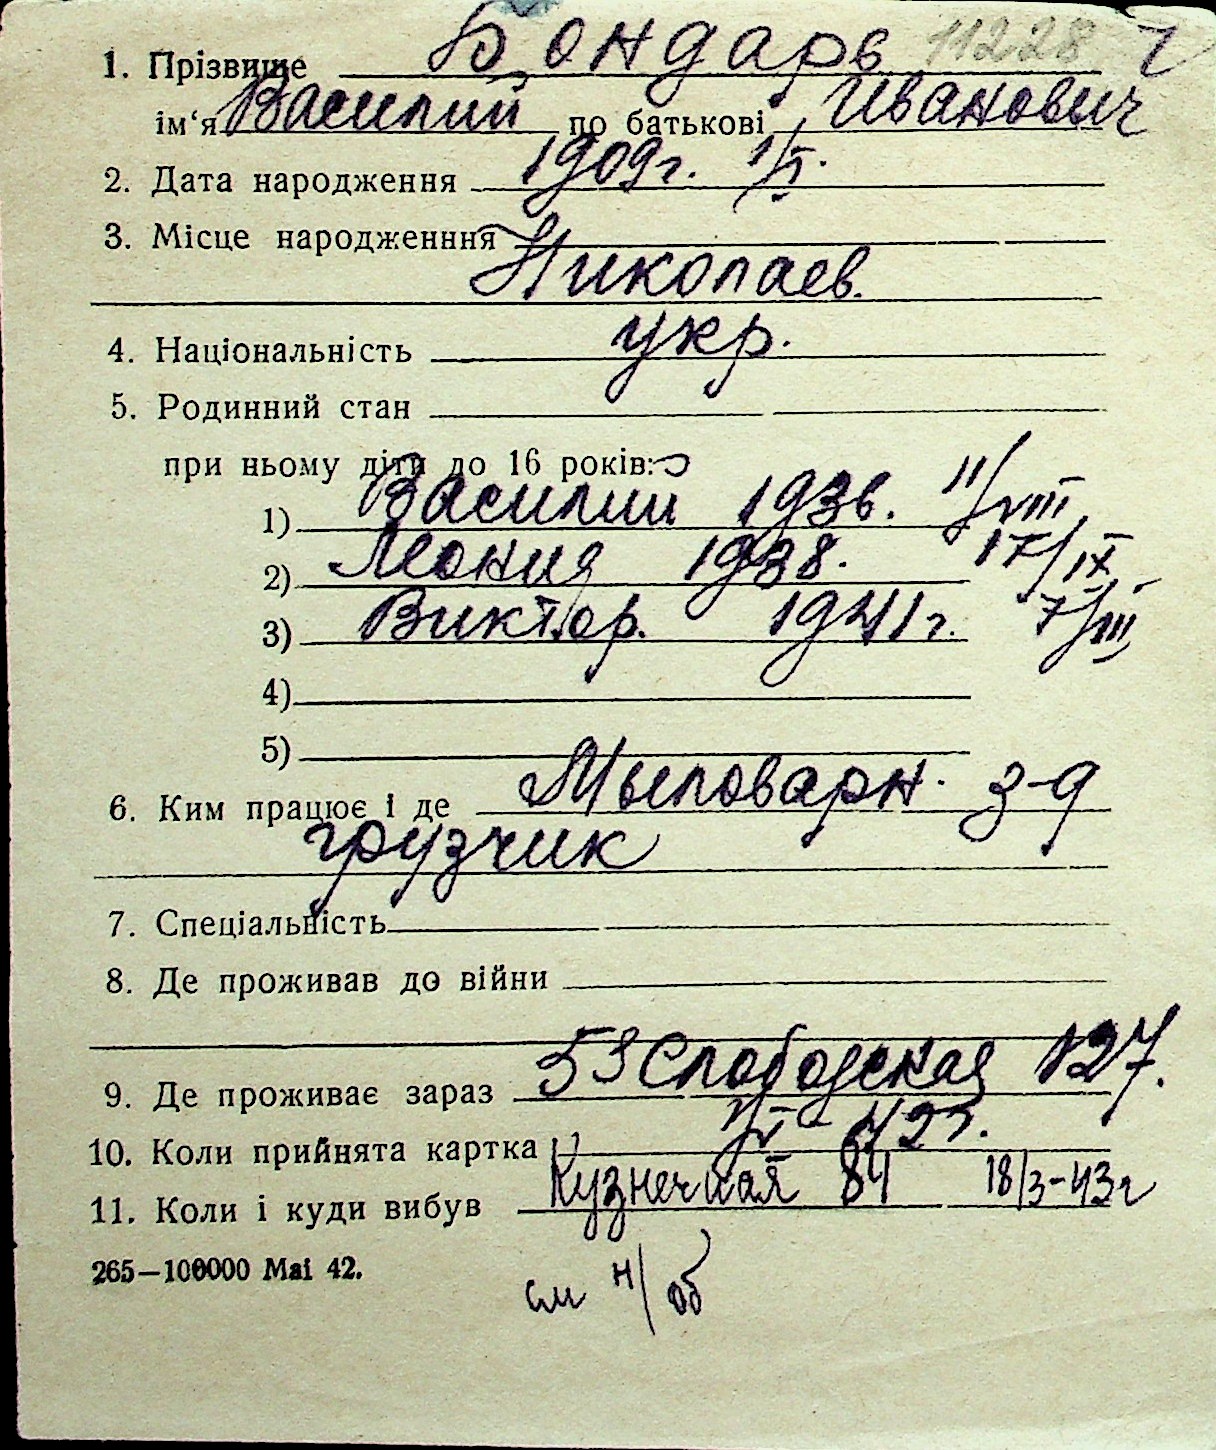 1. Прізвище Бондарь 11228
ім‘я Василий по батькові Иванович
2. Дата народження 1909г. 1/I.
3. Місце народженння
Николаев.
4. Національність укр.
5. Родинний стан
при ньому діти до 16 років:
1) Василий 1936. 11/VIII
2) Мония 1938. 17/IX
3) Виктор. 1941г. 7/III
4)
5)
6. Ким працює і де Мыловарн. з-д
грузчик
7. Спеціальність
8. Де проживав до війни
9. Де проживає зараз 5 Слободская 127.
10. Коли прийнята картка
11. Коли і куди вибув Кузнечная 84 18/3-43г
265—100000 Mai 42.
см н/об